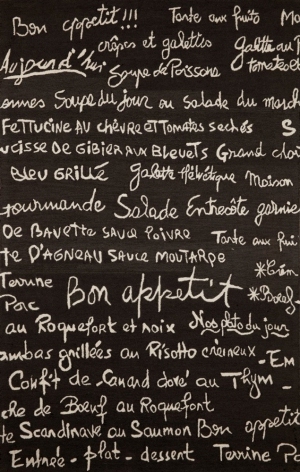 Bon appetit!!! Tarte aux fruits
crêpes et galettes Galette au
Aujourd'hui Soupe de Poissons tomates et
ennes Soupe du jour ou salade du march
Fettucine au chèvre et tomates sechés S
ucisse de Gibier aux Bleuets Grand choi
Bleu Grillé Galette Helvétique Maison
gourmande Salade Entrecôte garnie
De Bavette sauce poivre Tarte aux frui
te D'Agneau sauce moutarde
Terrine Bon appetit *Crèm
Porc *Boeuf
au Roquefort et noix Nos plats du jour
ambas grillées au Risotto crémeux - Em
Confit de Canard doré au Thym -
che de Bœuf au Roquefort
te Scandinave au Saumon Bon appetit
Entrée - plat - dessert Terrine Po